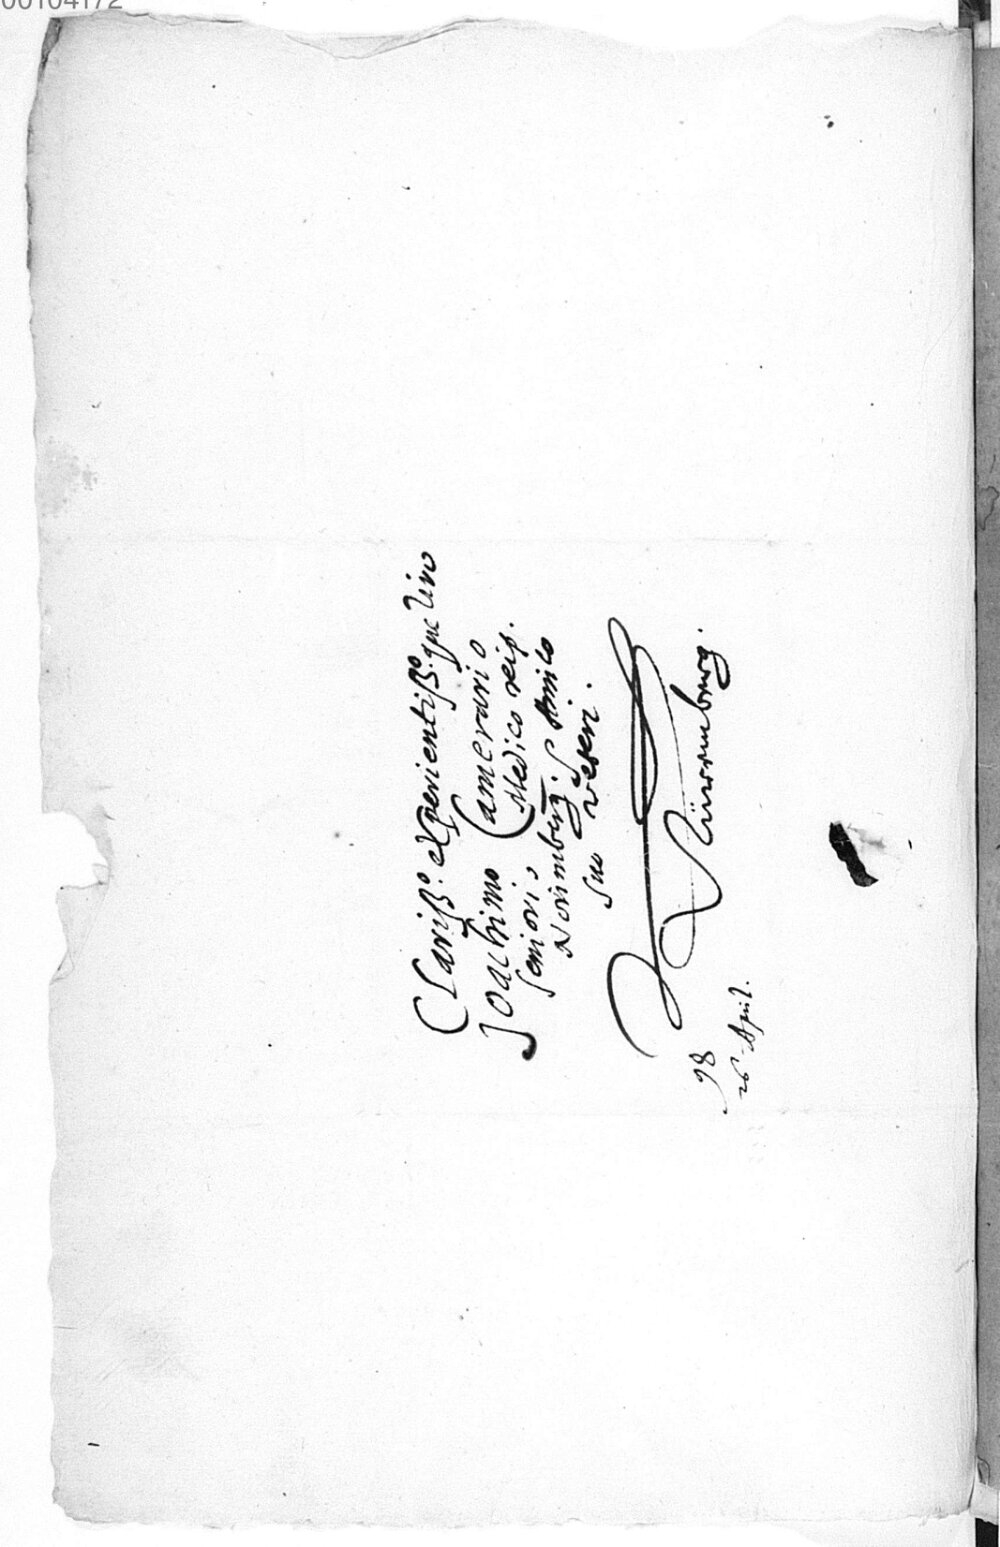 00104172
Clariß.º expientiß.º que viro
Joachimo Camerario
seniori Medico reip.
Norimberg: S Amico
suo veteri.
Nürremberg.
98
26 April.